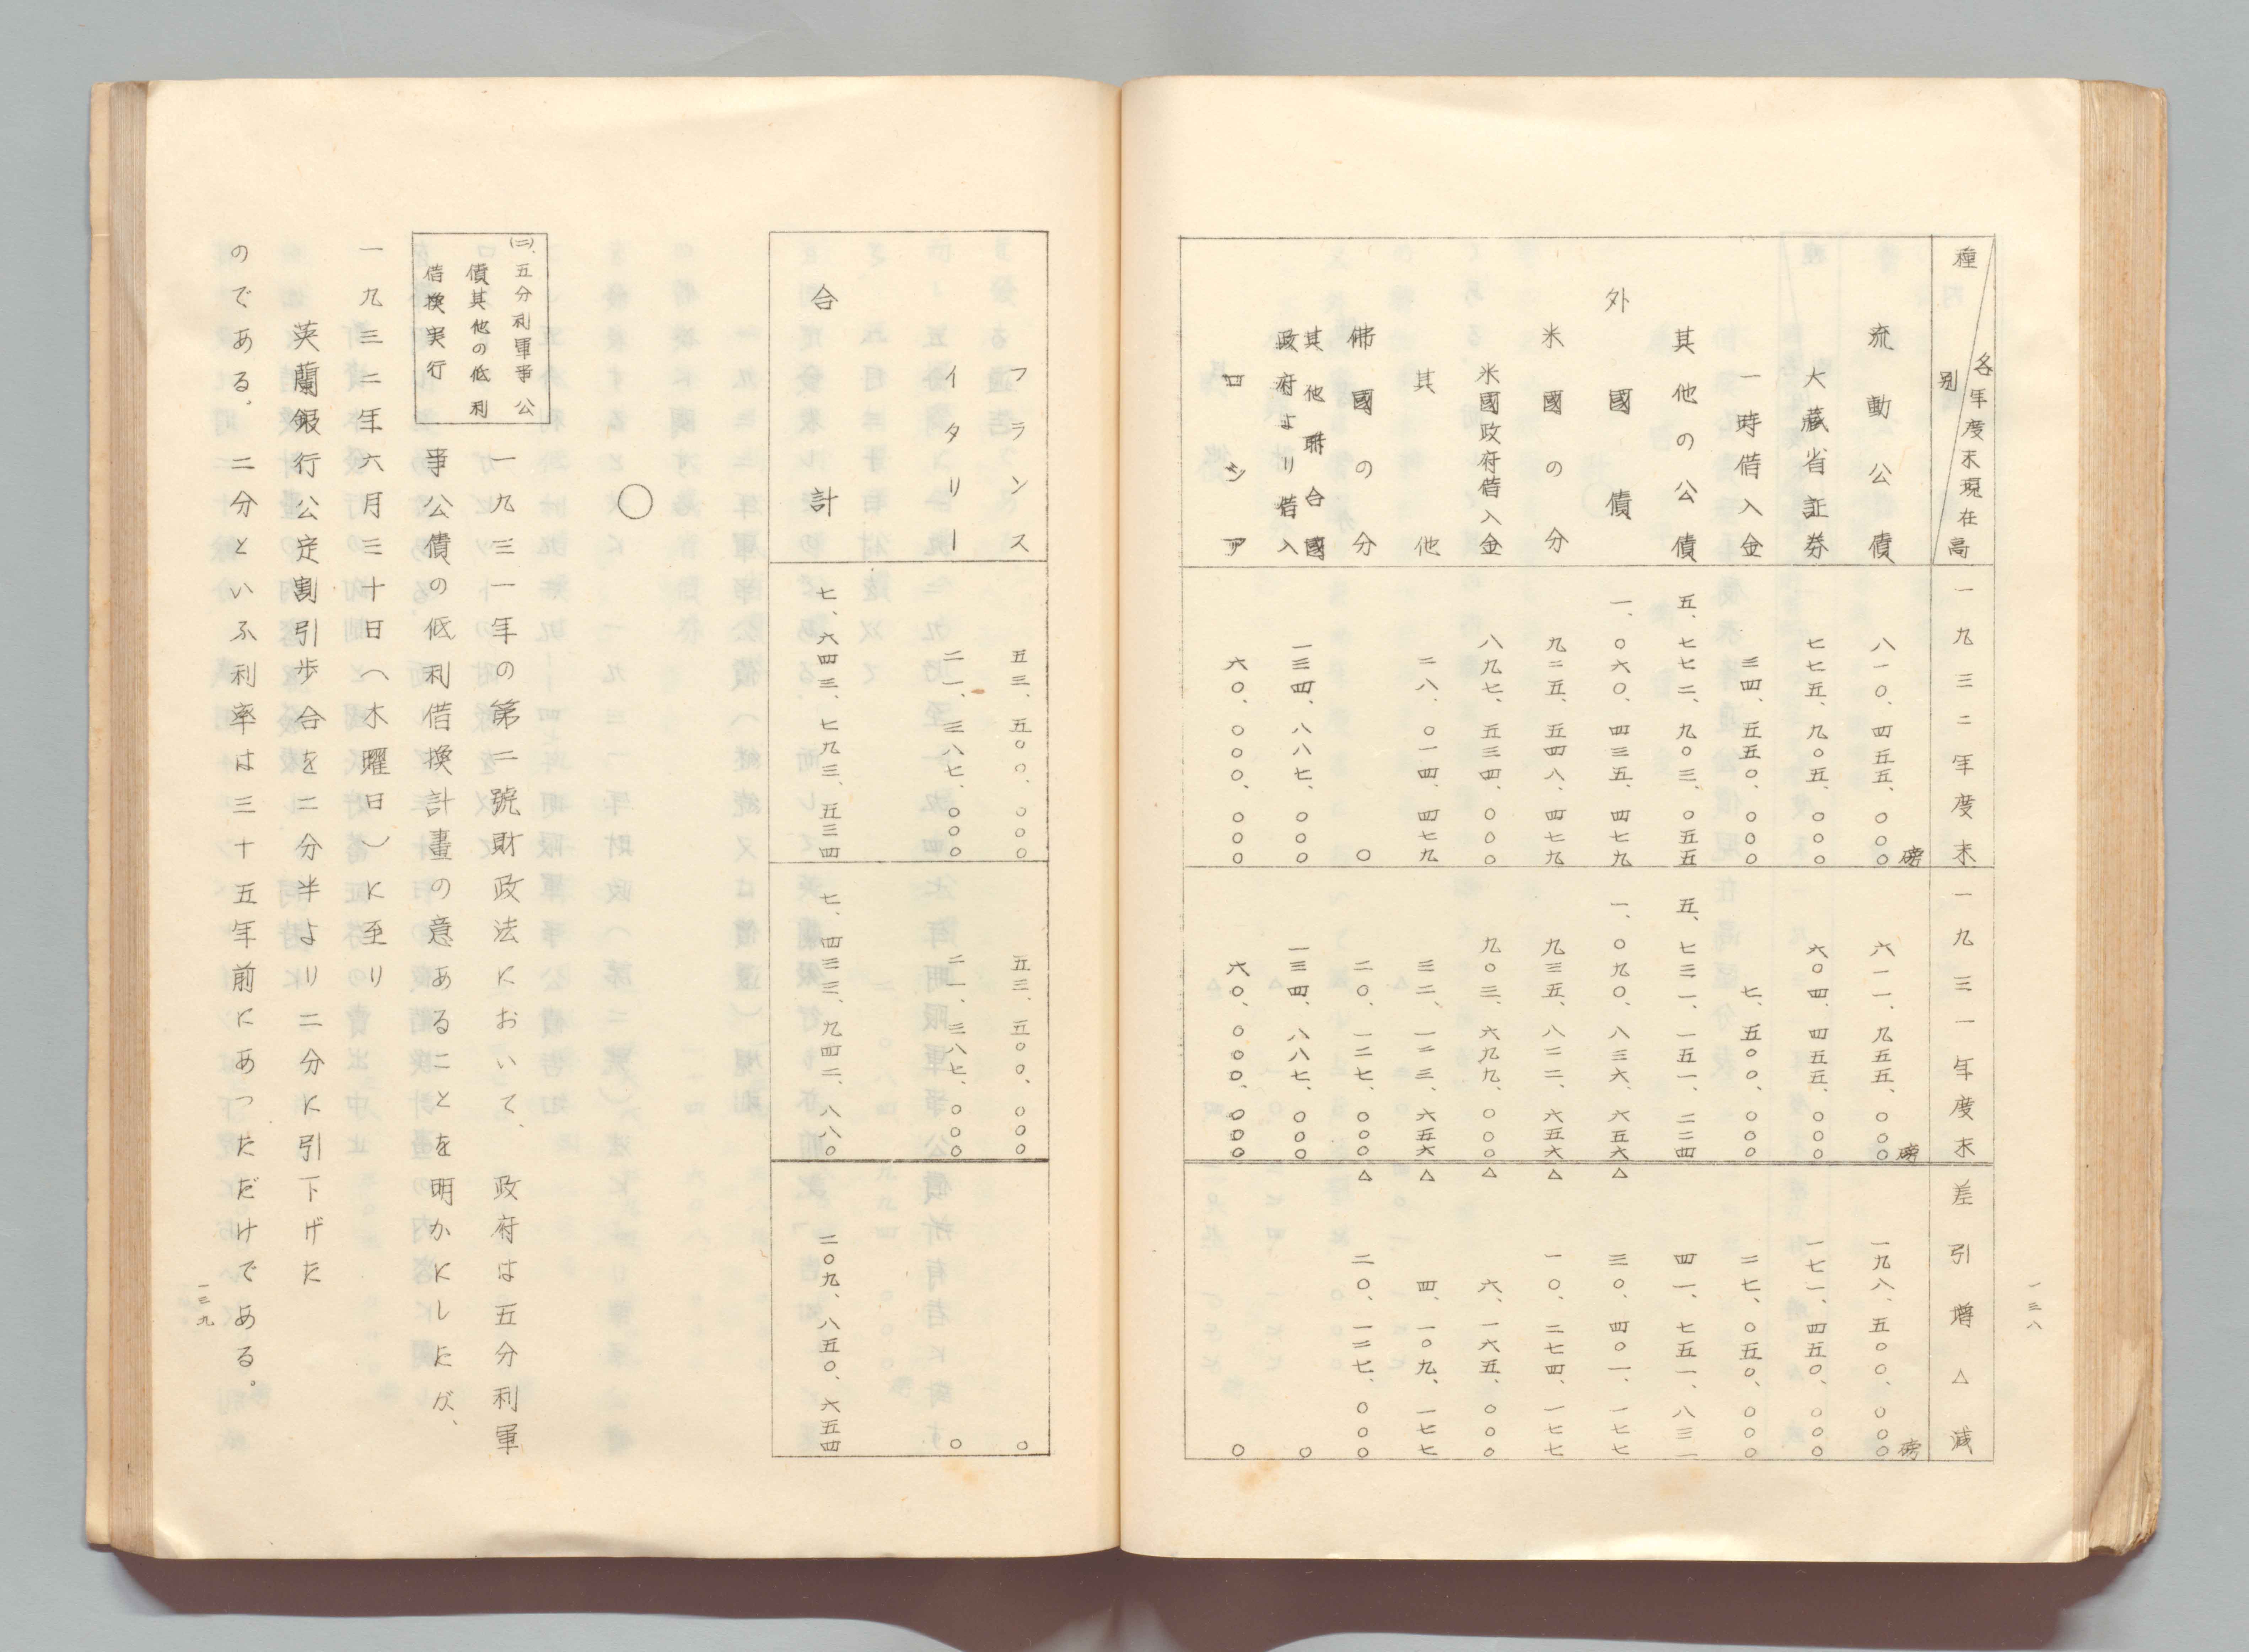 一三八
種別 各年度末現在高 一九三二年度末 一九三一年度末 差引増△減
流動公債 八一〇、四五五、〇〇〇磅 六一一、九五五、〇〇〇磅 一九八、五〇〇、〇〇〇磅
大蔵省証券 七七五、九〇五、〇〇〇 六〇四、四五五、〇〇〇 一七一、四五〇、〇〇〇
一時借入金 三四、五五〇、〇〇〇 七、五〇〇、〇〇〇 二七、〇五〇、〇〇〇
其他の公債 五、七七二、九〇三、〇五五 五、七三一、一五一、二二四 四一、七五一、八三一
外國債 一、〇六〇、四三五、四七九 一、〇九〇、八三六、六五六 △三〇、四〇一、一七七
米國の分 九二五、五四八、四七九 九三五、八二二、六五六 △一〇、二七四、一七七
米國政府借入金 八九七、五三四、〇〇〇 九〇三、六九九、〇〇〇 △六、一六五、〇〇〇
其他 二八、〇一四、四七九 三二、一二三、六五六 △四、一〇九、一七七
佛國の分 〇 二〇、一二七、〇〇〇 △二〇、一二七、〇〇〇
其他聯合國
政府より借入 一三四、八八七、〇〇〇 一三四、八八七、〇〇〇 〇
ロシア 六〇、〇〇〇、〇〇〇 六〇、〇〇〇、〇〇〇 〇
フランス 五三、五〇〇、〇〇〇 五三、五〇〇、〇〇〇 〇
イタリー 二一、三八七、〇〇〇 二一、三八七、〇〇〇 〇
合計 七、六四三、七九三、五三四 七、四三三、九四二、八八〇 二〇九、八五〇、六五四
〇
(二)、五分利軍爭公
債其他の低利
借換実行
一九三一年の第二號財政法において、政府は五分利軍
爭公債の低利借換計畫の意あることを明かにしたが、
一九三二年六月三十日(木曜日)に至り
英蘭銀行公定割引歩合を二分半より二分に引下げた
のである。二分といふ利率は三十五年前にあつただけである。
一三九